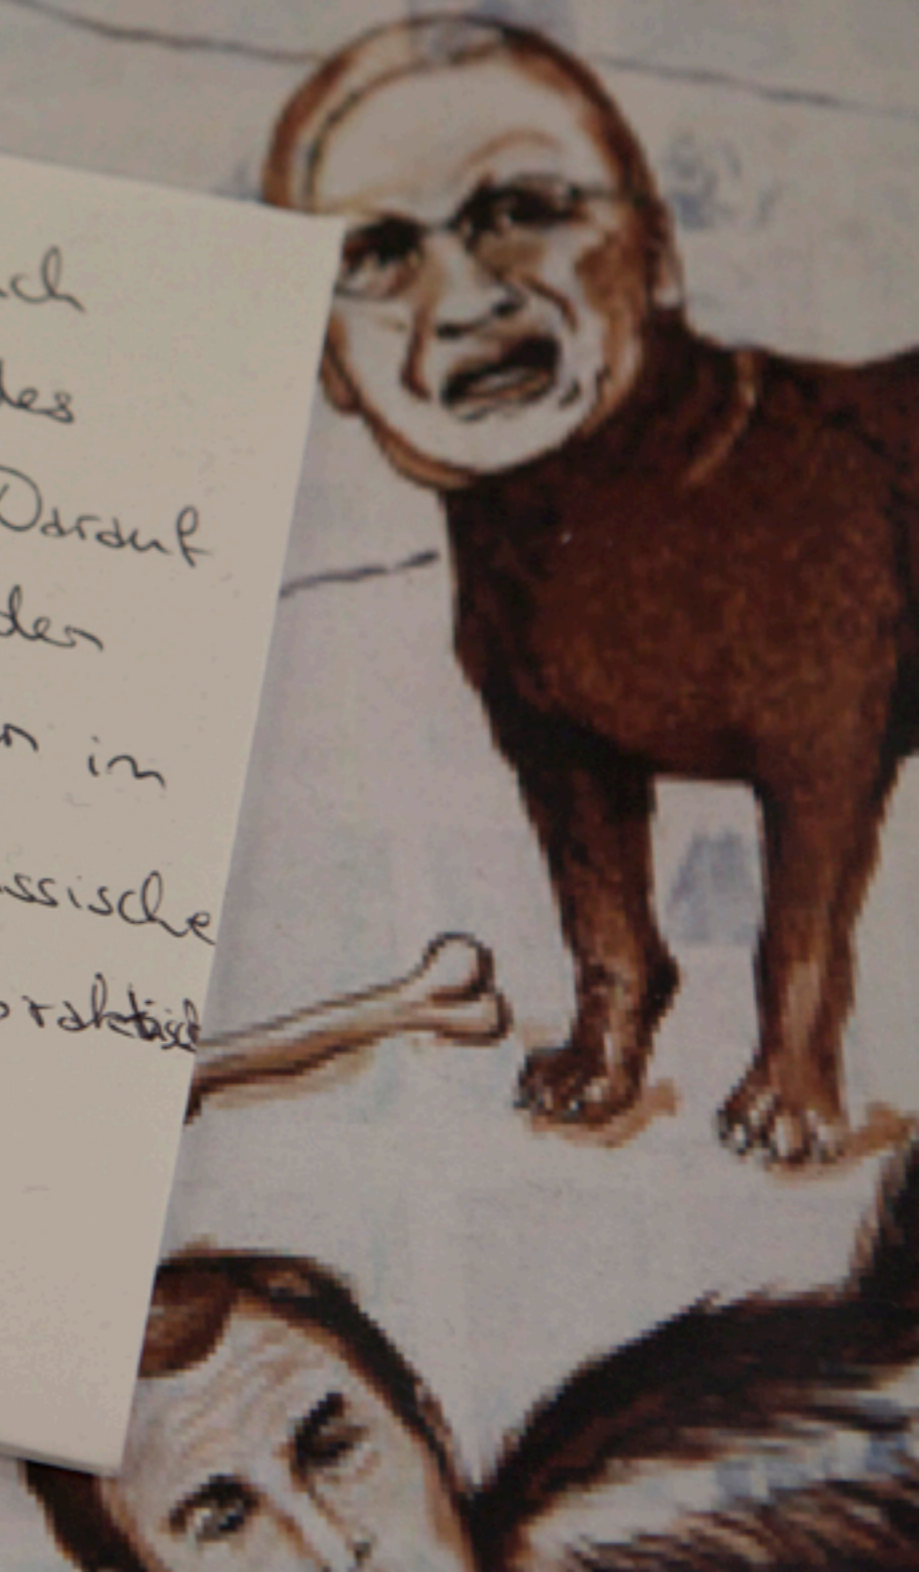 ch
des
Darauf
den
n in
ssische
praktisch